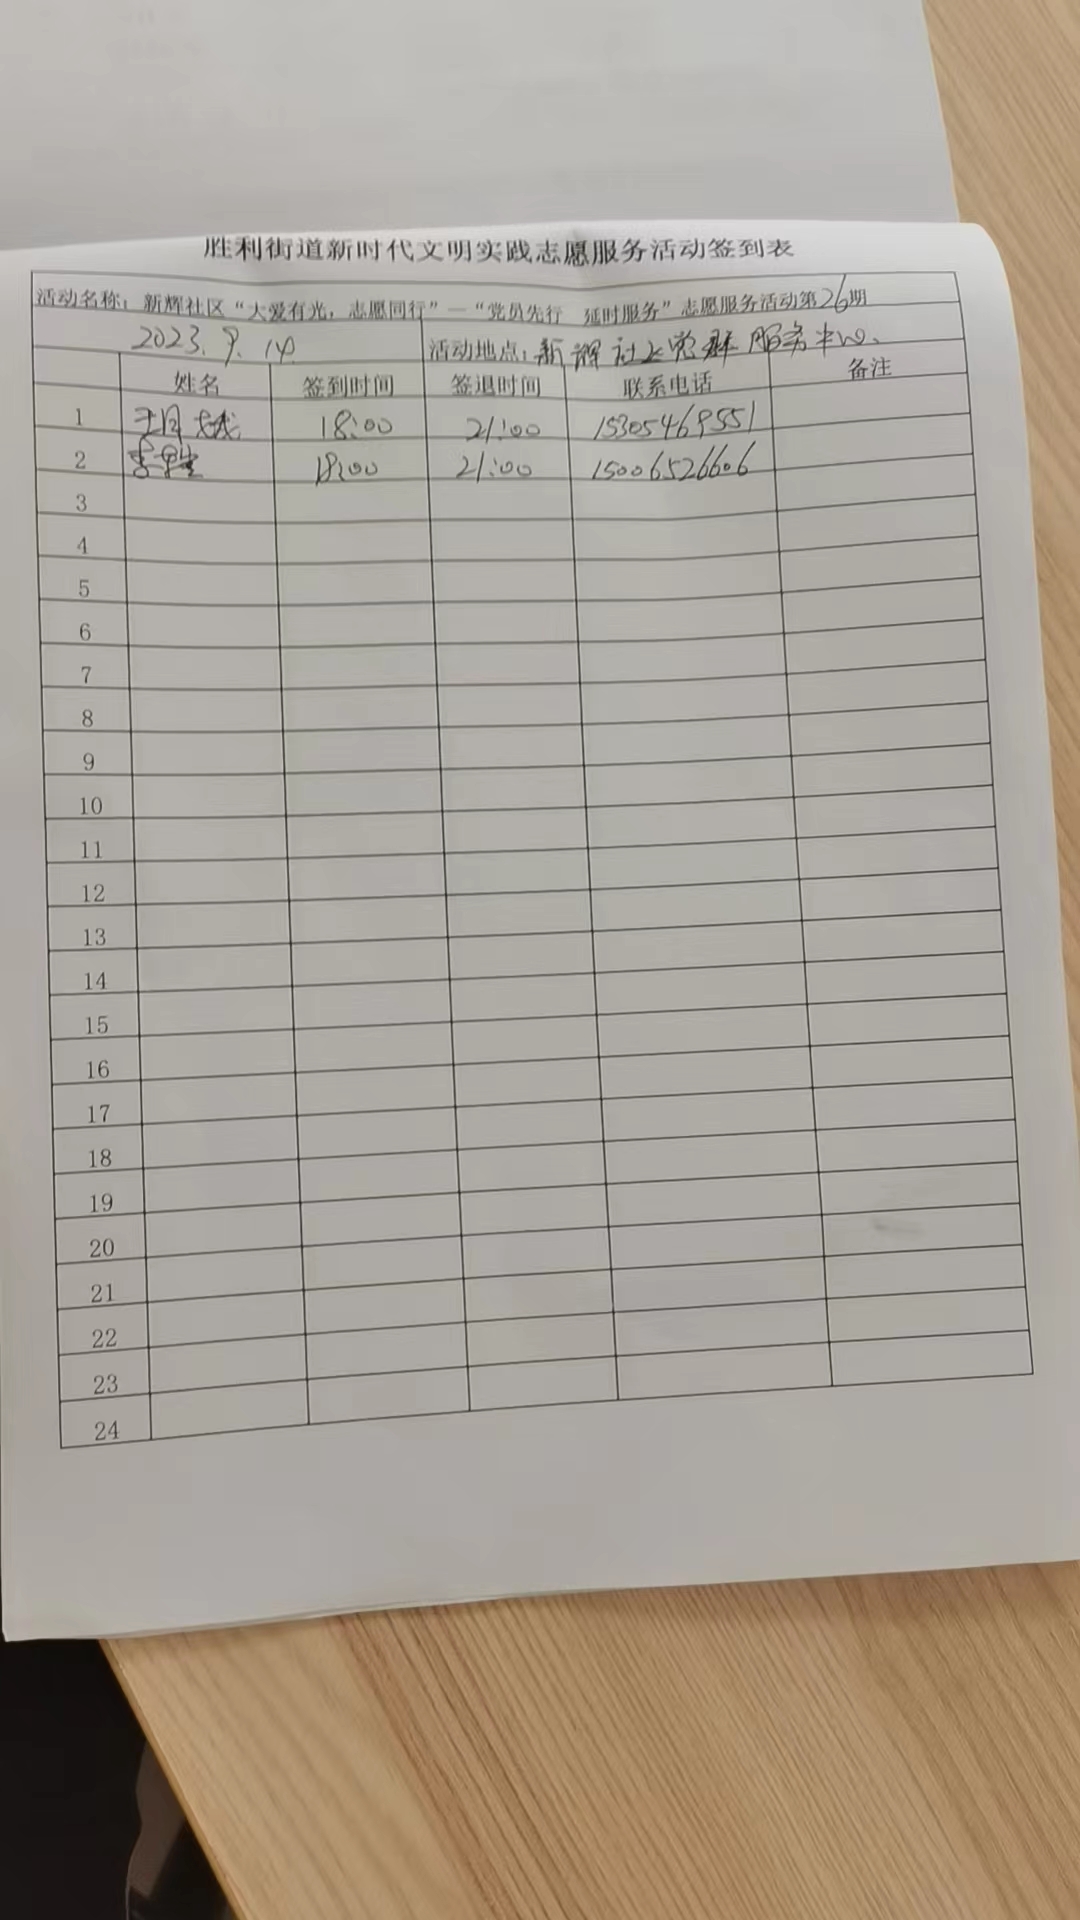 胜利街道新时代文明实践志愿服务活动签到表
活动名称：新辉社区“大爱有光，志愿同行”—“党员先行 延时服务”志愿服务活动第26期
2023.9.14 活动地点：新辉社区党群服务中心.
姓名 签到时间 签退时间 联系电话 备注
1 18:00 21:00 15305469551
2 18:00 21:00 15006526606
3
4
5
6
7
8
9
10
11
12
13
14
15
16
17
18
19
20
21
22
23
24